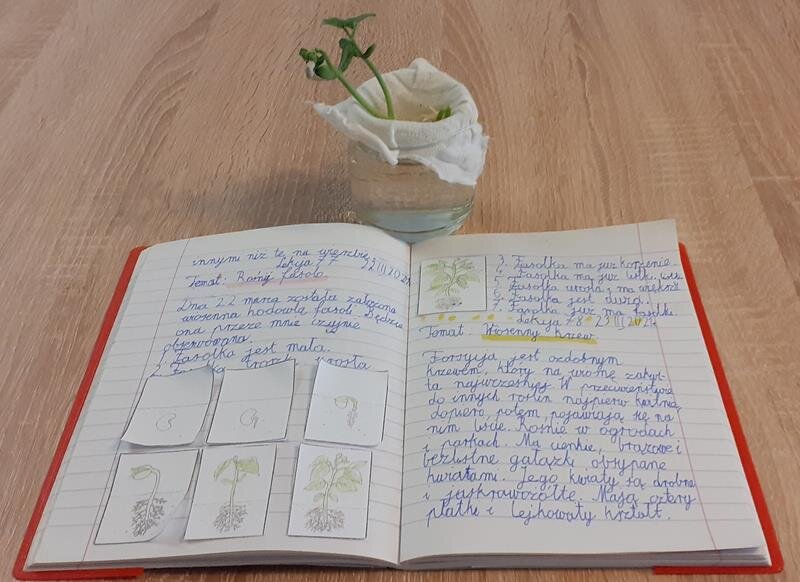 innymi niż te na
Lekcja 77 22 III 2021
Temat: Rośnij fasolo.
Dnia 22 marca została założona
wiosenna hodowla fasoli. Będzie
ona przeze mnie czujnie
obserwowana.
1. Fasolka jest mała.
2. Fasolka trochę urosła
3. Fasolka ma już korzenie.
4. Fasolka ma już listki.
5. Fasolka urosła i ma większe
6. Fasolka jest duża.
7. Fasolka już ma fasolki.
Lekcja 78 23 III 2021
Temat: Wiosenny krzew
Forsycja jest ozdobnym
krzewem, który na wiosnę zakwi-
ta najwcześniej. W przeciwieństwie
do innych roślin najpierw kwitnie,
dopiero potem pojawiają się na
nim liście. Rośnie w ogrodach
i parkach. Ma cienkie, brązowe i
bezlistne gałązki obsypane
kwiatami. Jego kwiaty są drobne
i jaskrawożółte. Mają cztery
płatki i lejkowaty kształt.